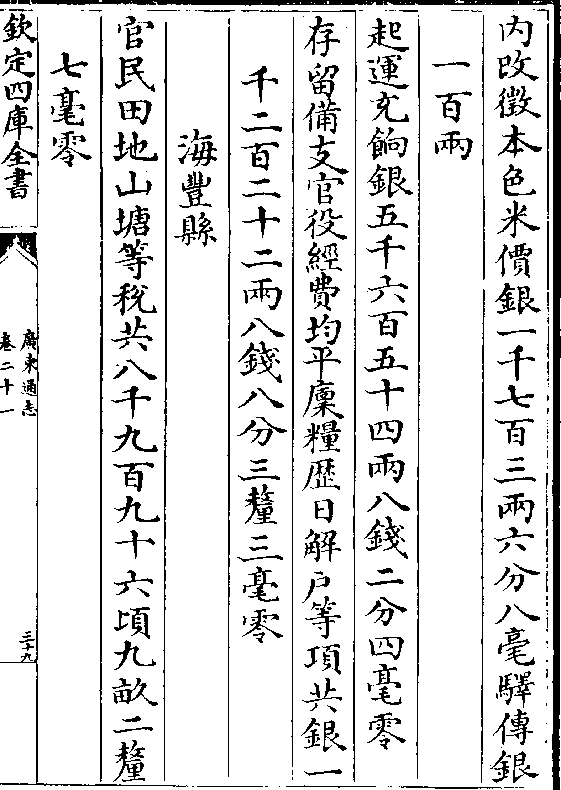 內改徵本色米價銀一千七百三兩六分八毫驛傳銀
一百兩
起運充餉銀五千六百五十四兩八錢二分四毫零
存留備支官役經費均平廩糧歷日解戶等項共銀一
千二百二十二兩八錢八分三釐三毫零
海豐縣
官民田地山塘等稅共八千九百九十六頃九畝二釐
七毫零
欽定四庫全書
廣東通志
卷二十一
三十九